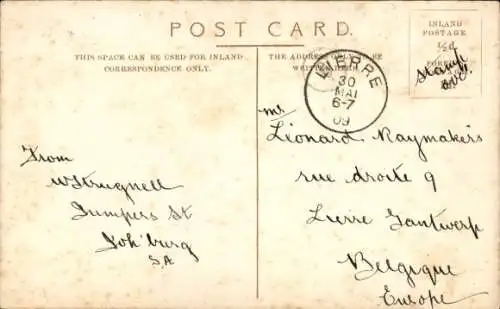 POST CARD.
THIS SPACE CAN BE USED FOR INLAND
CORRESPONDENCE ONLY.
THE ADDRESS BE
WRITTEN
INLAND
POSTAGE
½d
stamp
LIERRE
30
MAI
6-7
09
From
W Strugnell
Jumpers St
Joh'burg
S.A
Mr
Léonard Raymakers
rue droite 9
Lierre Gantwerp
Belgique
Europe